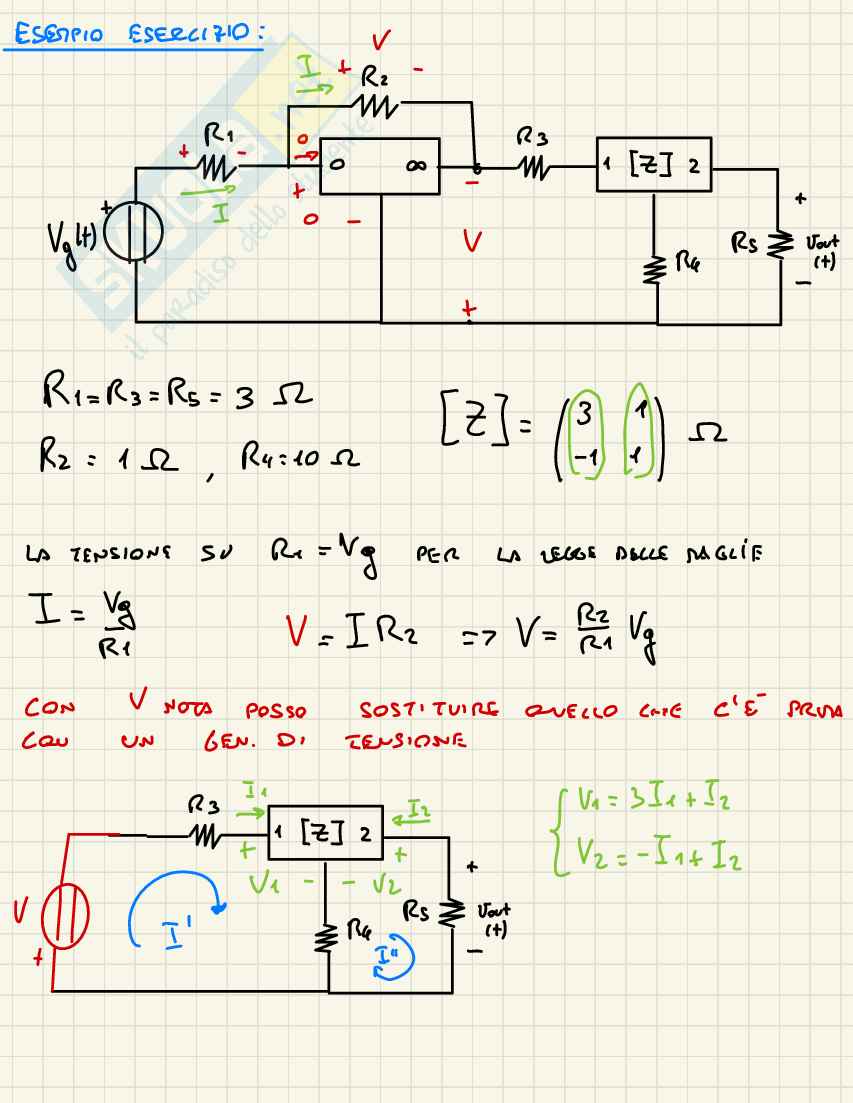 ESEMPIO ESERCIZIO:
V
I + R2 -
+ R1 - 0 0 ∞ R3 1 [Z] 2
I + 0 - -
Vg(t) + V R4 R5 + Vout (t) -
+
il paradiso dello studente
R1=R3=R5=3 Ω
R2 = 1 Ω , R4=10 Ω
[Z] = (3 1
-1 1) Ω
LA TENSIONE SU R1 = Vg PER LA LEGGE DELLE MAGLIE
I = Vg/R1 V = I R2 => V= R2/R1 Vg
CON V NOTA POSSO SOSTITUIRE QUELLO CHE C'E' PRIMA
CON UN GEN. DI TENSIONE
R3 I1 1 [Z] 2 I2
+ V1 - - V2 +
V + I' R4 I'' R5 + Vout (t) -
V1 = 3I1 + I2
V2 = -I1 + I2